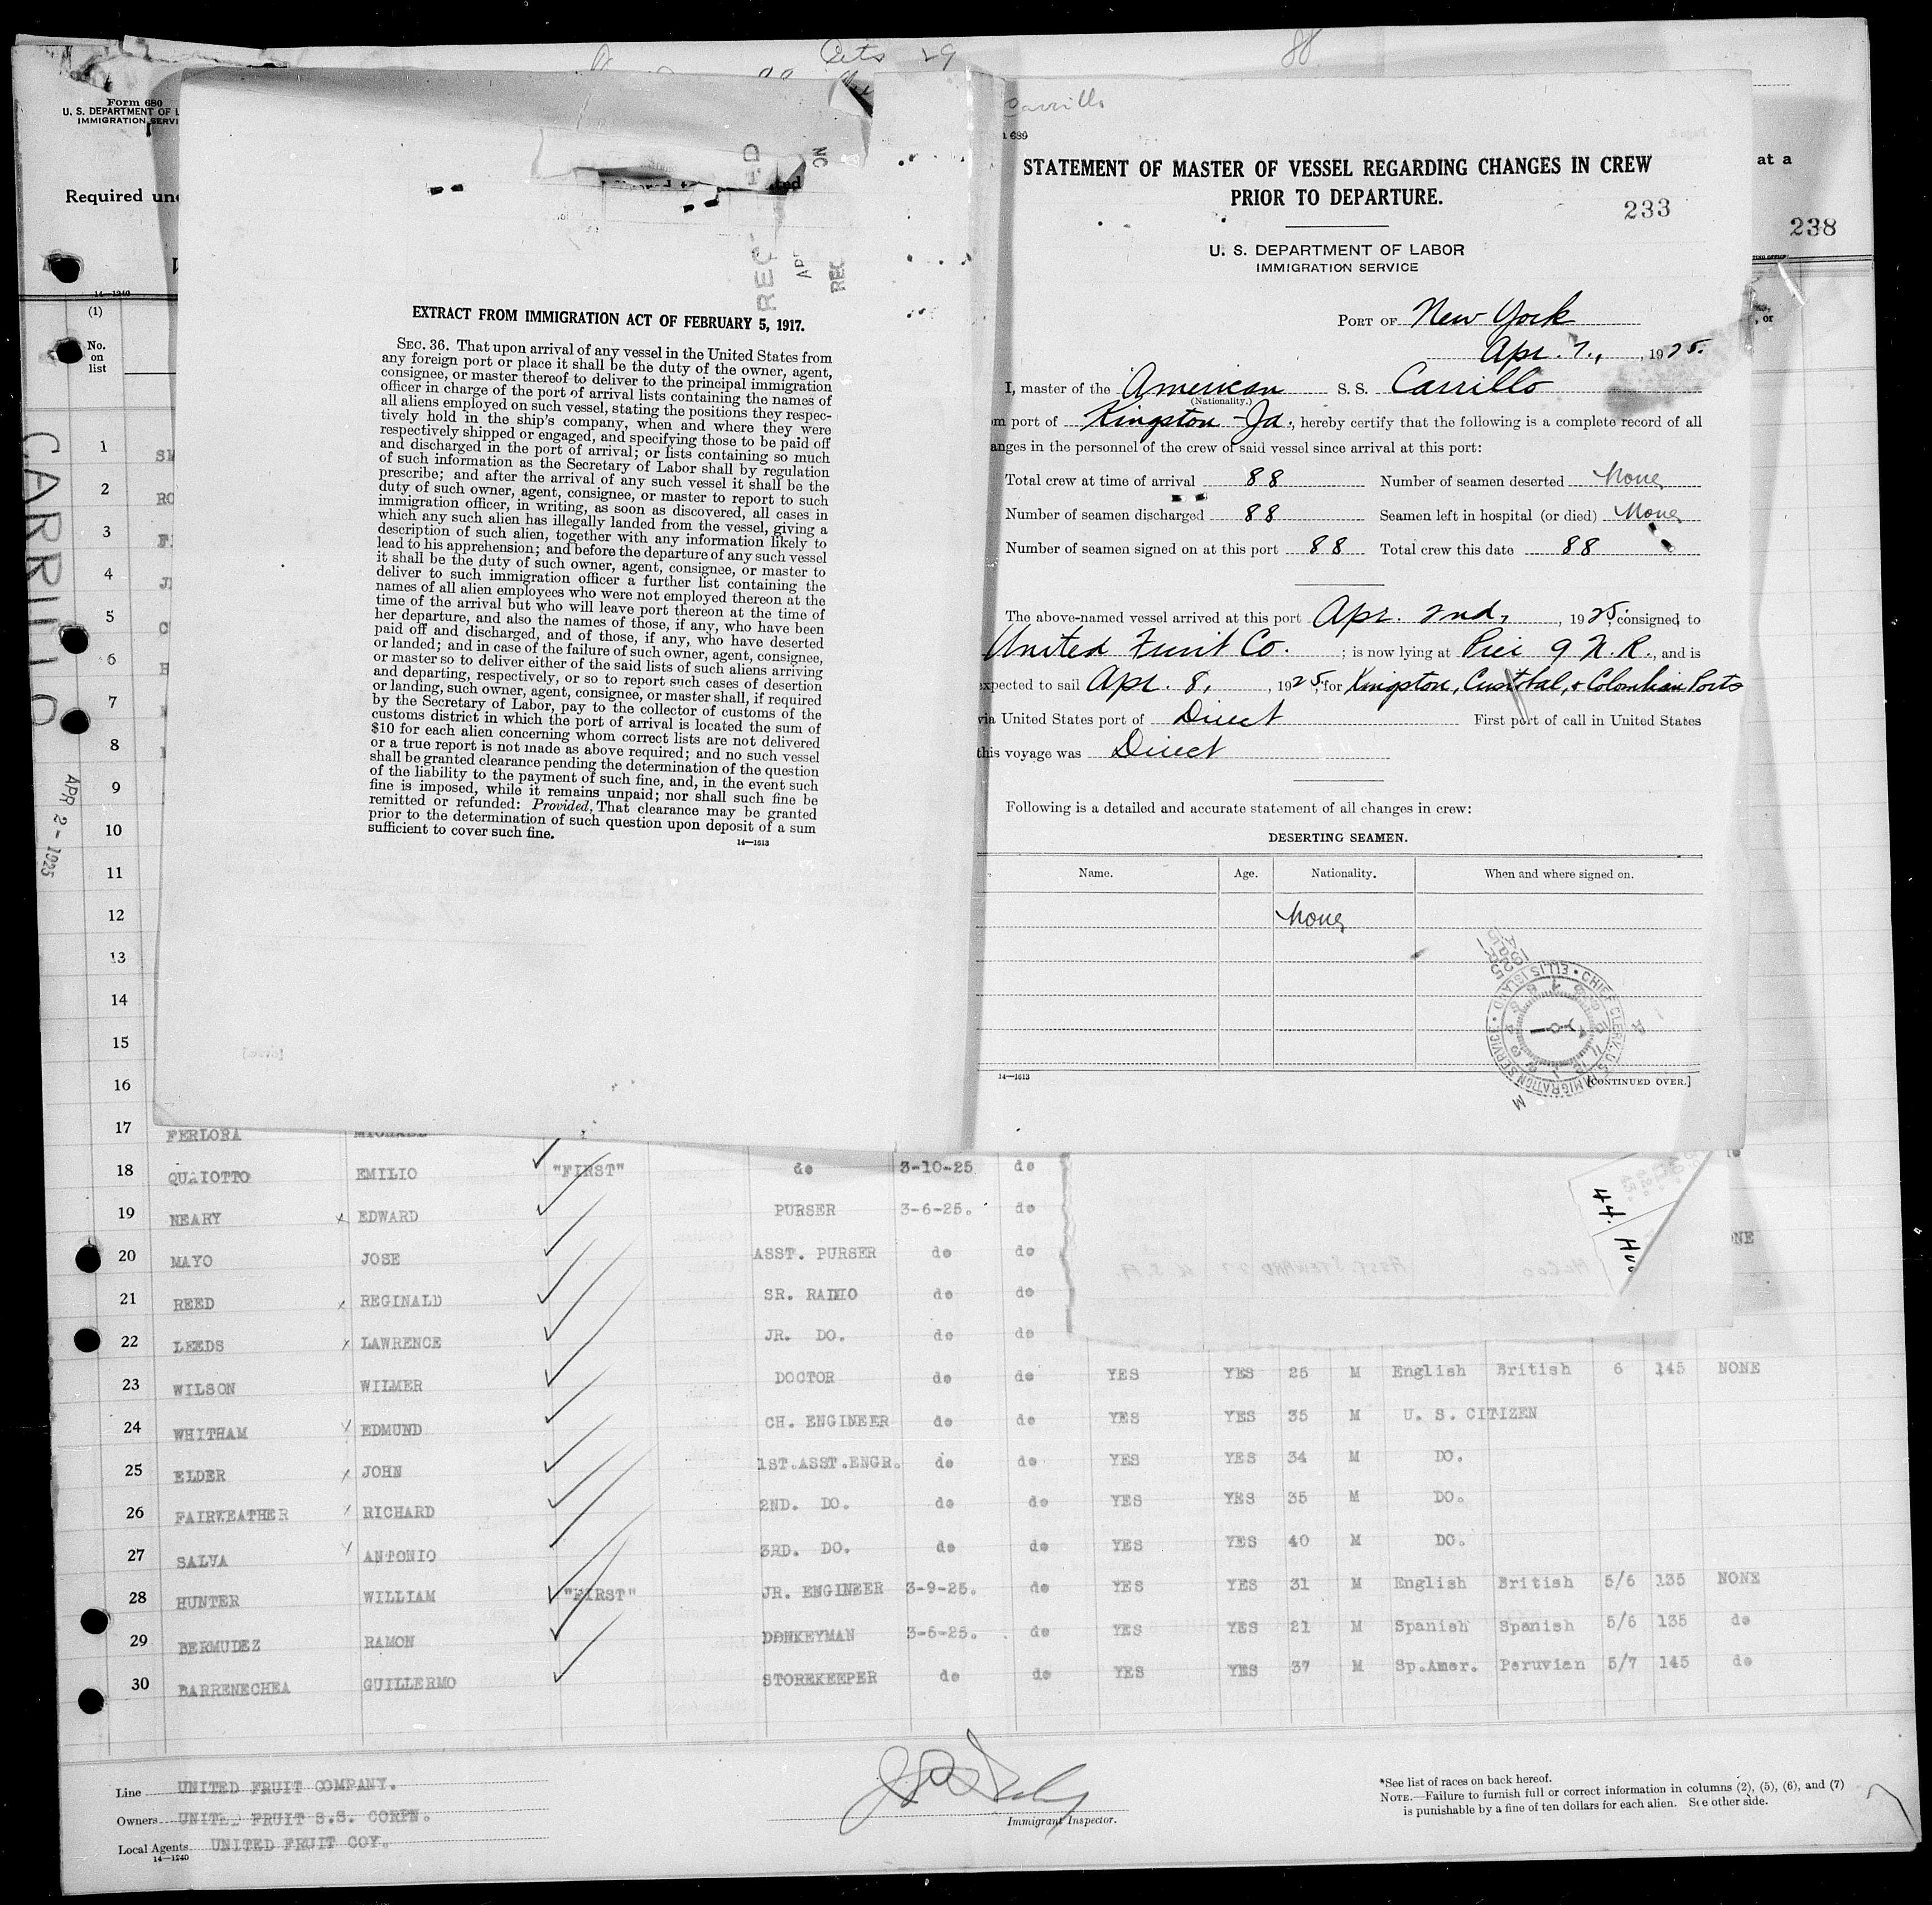 Dets 29
88
Form 680
U. S. DEPARTMENT OF L
IMMIGRATION SERVI
Required und
at a
238
14—1240
(1)
No.
on
list
or
CARRILLO
APR 2 - 1925
EXTRACT FROM IMMIGRATION ACT OF FEBRUARY 5, 1917.
SEC. 36. That upon arrival of any vessel in the United States from
any foreign port or place it shall be the duty of the owner, agent,
consignee, or master thereof to deliver to the principal immigration
officer in charge of the port of arrival lists containing the names of
all aliens employed on such vessel, stating the positions they respec-
tively hold in the ship's company, when and where they were
respectively shipped or engaged, and specifying those to be paid off
and discharged in the port of arrival; or lists containing so much
of such information as the Secretary of Labor shall by regulation
prescribe; and after the arrival of any such vessel it shall be the
duty of such owner, agent, consignee, or master to report to such
immigration officer, in writing, as soon as discovered, all cases in
which any such alien has illegally landed from the vessel, giving a
description of such alien, together with any information likely to
lead to his apprehension; and before the departure of any such vessel
it shall be the duty of such owner, agent, consignee, or master to
deliver to such immigration officer a further list containing the
names of all alien employees who were not employed thereon at the
time of the arrival but who will leave port thereon at the time of
her departure, and also the names of those, if any, who have been
paid off and discharged, and of those, if any, who have deserted
or landed; and in case of the failure of such owner, agent, consignee,
or master so to deliver either of the said lists of such aliens arriving
and departing, respectively, or so to report such cases of desertion
or landing, such owner, agent, consignee, or master shall, if required
by the Secretary of Labor, pay to the collector of customs of the
customs district in which the port of arrival is located the sum of
$10 for each alien concerning whom correct lists are not delivered
or a true report is not made as above required; and no such vessel
shall be granted clearance pending the determination of the question
of the liability to the payment of such fine, and, in the event such
fine is imposed, while it remains unpaid; nor shall such fine be
remitted or refunded: Provided, That clearance may be granted
prior to the determination of such question upon deposit of a sum
sufficient to cover such fine.
14—1613
Carrillo
689
STATEMENT OF MASTER OF VESSEL REGARDING CHANGES IN CREW
PRIOR TO DEPARTURE.
233
U. S. DEPARTMENT OF LABOR
IMMIGRATION SERVICE
PORT OF New York
Apr. 7., 1925.
I, master of the American S. S. Carrillo
(Nationality.)
m port of Kingston - Ja., hereby certify that the following is a complete record of all
anges in the personnel of the crew of said vessel since arrival at this port:
Total crew at time of arrival 88 Number of seamen deserted None
Number of seamen discharged 88 Seamen left in hospital (or died) None
Number of seamen signed on at this port 88 Total crew this date 88
The above-named vessel arrived at this port Apr. 2nd, , 1925, consigned to
United Fruit Co. ; is now lying at Pier 9 N.R., and is
expected to sail Apr. 8, , 1925, for Kingston, Cristobal, + Colombian Ports
via United States port of Direct First port of call in United States
this voyage was Direct
Following is a detailed and accurate statement of all changes in crew:
DESERTING SEAMEN.
Name. Age. Nationality. When and where signed on.
None
CHIEF CLERK, U.S. IMMIGRATION SERVICE · ELLIS ISLAND
14—1613
[CONTINUED OVER.]
1
2
3
4
5
6
7
8
9
10
11
12
13
14
15
16
17 FERLORA MICHAEL
18 QUAIOTTO EMILIO "FIRST" do 3-10-25 do
19 NEARY x EDWARD PURSER 3-6-25. do
20 MAYO JOSE ASST. PURSER do do
21 REED x REGINALD SR. RADIO do do
22 LEEDS x LAWRENCE JR. DO. do do
44. Hu
NE
23 WILSON WILMER DOCTOR do do YES YES 25 M English British 6 145 NONE
24 WHITHAM x EDMUND CH. ENGINEER do do YES YES 35 M U. S. CITIZEN
25 ELDER x JOHN 1ST.ASST.ENGR. do do YES YES 34 M DO.
26 FAIRWEATHER x RICHARD 2ND. DO. do do YES YES 35 M DO.
27 SALVA x ANTONIO 3RD. DO. do do YES YES 40 M DO.
28 HUNTER WILLIAM "FIRST" JR. ENGINEER 3-9-25. do YES YES 31 M English British 5/6 135 NONE
29 BERMUDEZ RAMON DONKEYMAN 3-6-25. do YES YES 21 M Spanish Spanish 5/6 135 do
30 BARRENECHEA GUILLERMO STOREKEEPER do do YES YES 37 M Sp.Amer. Peruvian 5/7 145 do
Line UNITED FRUIT COMPANY.
Owners UNITED FRUIT S.S. CORPN.
Local Agents UNITED FRUIT COY.
14—1240
Immigrant Inspector.
*See list of races on back hereof.
NOTE.—Failure to furnish full or correct information in columns (2), (5), (6), and (7)
is punishable by a fine of ten dollars for each alien. See other side.